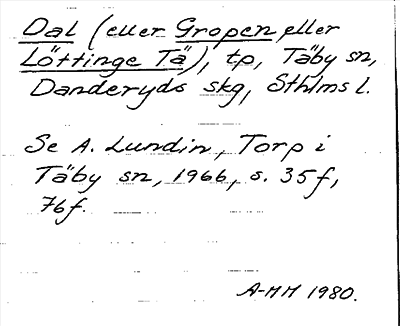 Dal (eller Gropen eller
Löttinge Tä), tp, Täby sn,
Danderyds skg, Sthlms l.
Se A. Lundin, Torp i
Täby sn, 1966, s. 35f,
76f.
A-MM 1980.